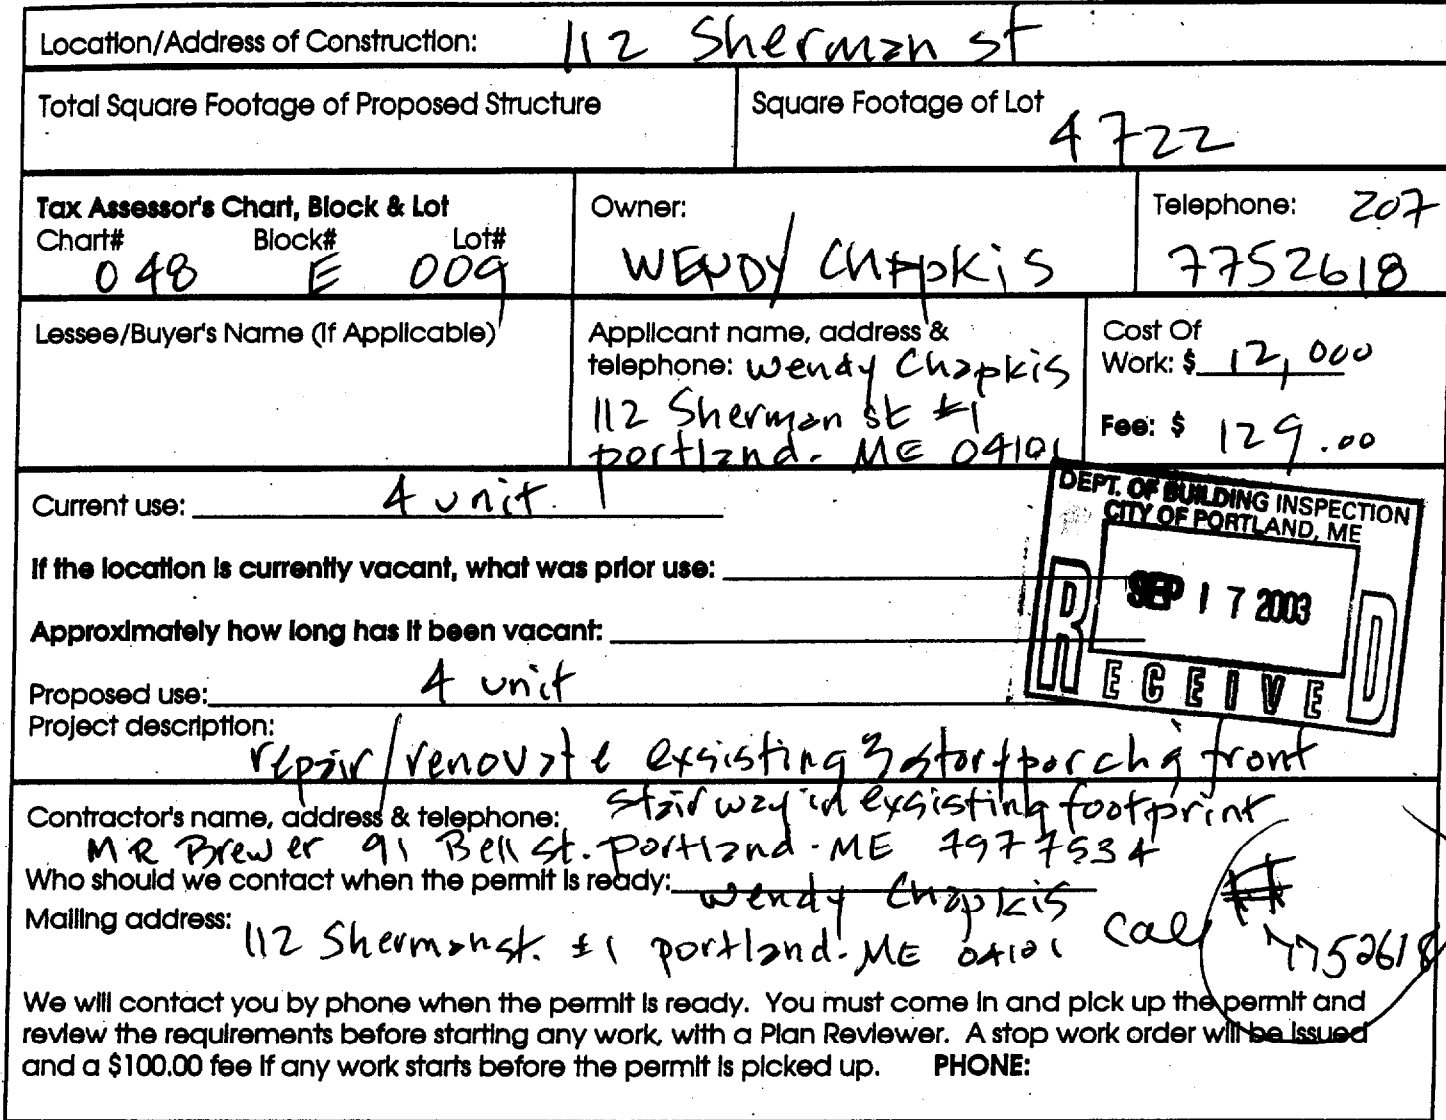 Location/Address of Construction: 112 Sherman st
Total Square Footage of Proposed Structure
Square Footage of Lot 4722
Tax Assessor's Chart, Block & Lot
Chart# Block# Lot#
048 E 009
Owner:
WENDY Chapkis
Telephone: 207
7752618
Lessee/Buyer's Name (If Applicable)
Applicant name, address &
telephone: Wendy Chapkis
112 Sherman st #1
portland. ME 04101
Cost Of
Work: $ 12,000
Fee: $ 129.00
Current use: 4 unit
DEPT. OF BUILDING INSPECTION
CITY OF PORTLAND, ME
SEP 17 2003
RECEIVED
If the location is currently vacant, what was prior use:
Approximately how long has it been vacant:
Proposed use: 4 unit
Project description:
repair/renovate exsisting 3 story porch & front
stairway in exsisting footprint
Contractor's name, address & telephone:
MR Brewer 91 Bell st. portland. ME 7977534
Who should we contact when the permit is ready: wendy Chapkis
Mailing address: 112 Sherman st. #1 portland. ME 04101 call # 7752618
We will contact you by phone when the permit is ready. You must come in and pick up the permit and
review the requirements before starting any work, with a Plan Reviewer. A stop work order will be issued
and a $100.00 fee if any work starts before the permit is picked up. PHONE: